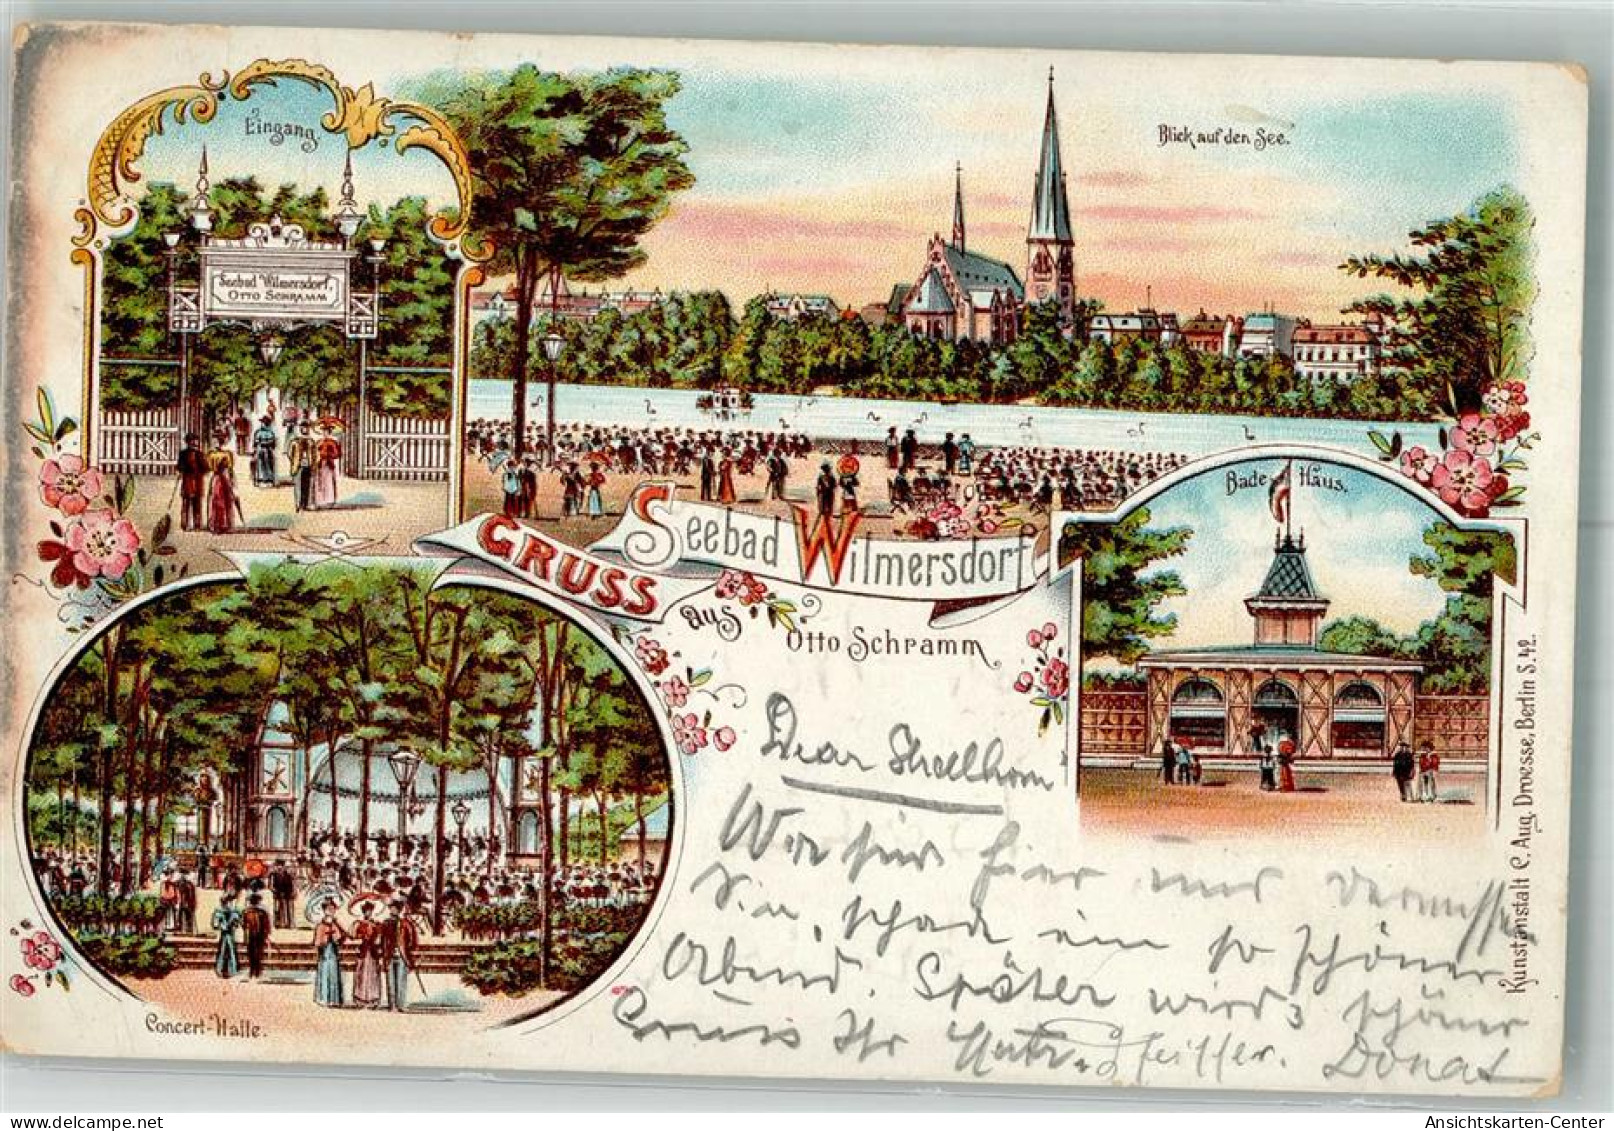 Eingang.
Seebad Wilmersdorf,
OTTO SCHRAMM
Blick auf den See.
Bade Haus.
GRUSS
aus
Seebad Wilmersdorf
Otto Schramm
Concert-Halle.
Kunstanstalt C. Aug. Droesse, Berlin S. 42.
Dear
Wir hier nur vermissen
Sie, schade ein so schöner
Abend. Später wird's schöner
Gruss Ihr Pfeiffer. Donat
Ansichtskarten-Center